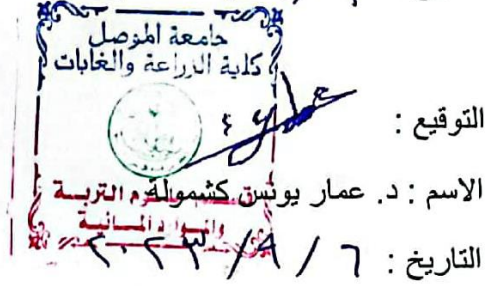 جامعة الموصل
كلية الزراعة والغابات
التوقيع :
الاسم : د. عمار يونس كشمولة
قسم علوم التربة
والموارد المائية
التاريخ : ٦ / ٩ / ٢٠٢٣